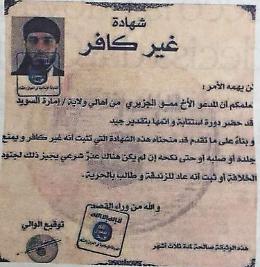 شهادة
غير كافر
لمن يهمه الأمر :
نعلمكم أن المدعو الأخ الجزيري من أهالي ولاية / إمارة السويد
قد حضر دورة استتابة و أتمها بتقدير جيد
و بناءً على ما تقدم قد منحناه هذه الشهادة التي تثبت أنه غير كافر و يمنع
جلدة أو صلبه أو حتى نكحه إن لم يكن هناك عذرٌ شرعي يجيز ذلك لجنود
الخلافة أو ثبت أنه عاد للزندقة و طالب بالحرية .
و الله من وراء القصد
لا إله إلا الله
توقيع الوالي
هذه الوثيقة صالحة لمدة ثلاث أشهر